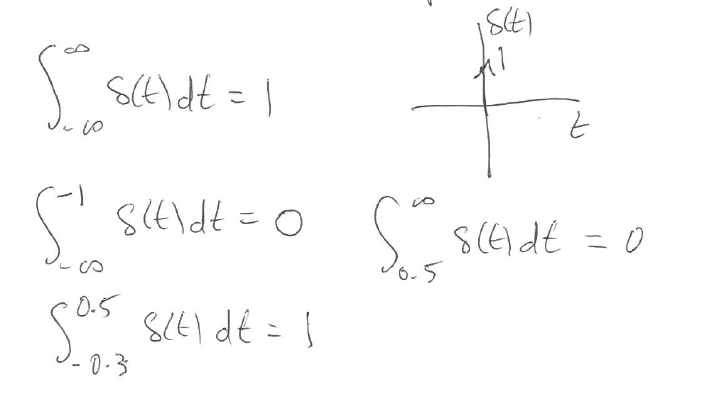 ∫_{-∞}^{∞} δ(t) dt = 1
δ(t)
1
t
∫_{-∞}^{-1} δ(t) dt = 0
∫_{0.5}^{∞} δ(t) dt = 0
∫_{-0.3}^{0.5} δ(t) dt = 1